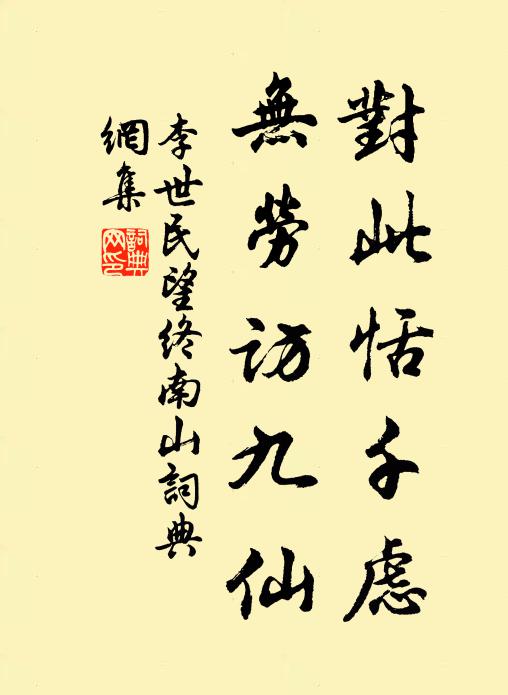 對此恬千慮
無勞訪九仙
李世民望終南山詞典
網集
詞典
网印